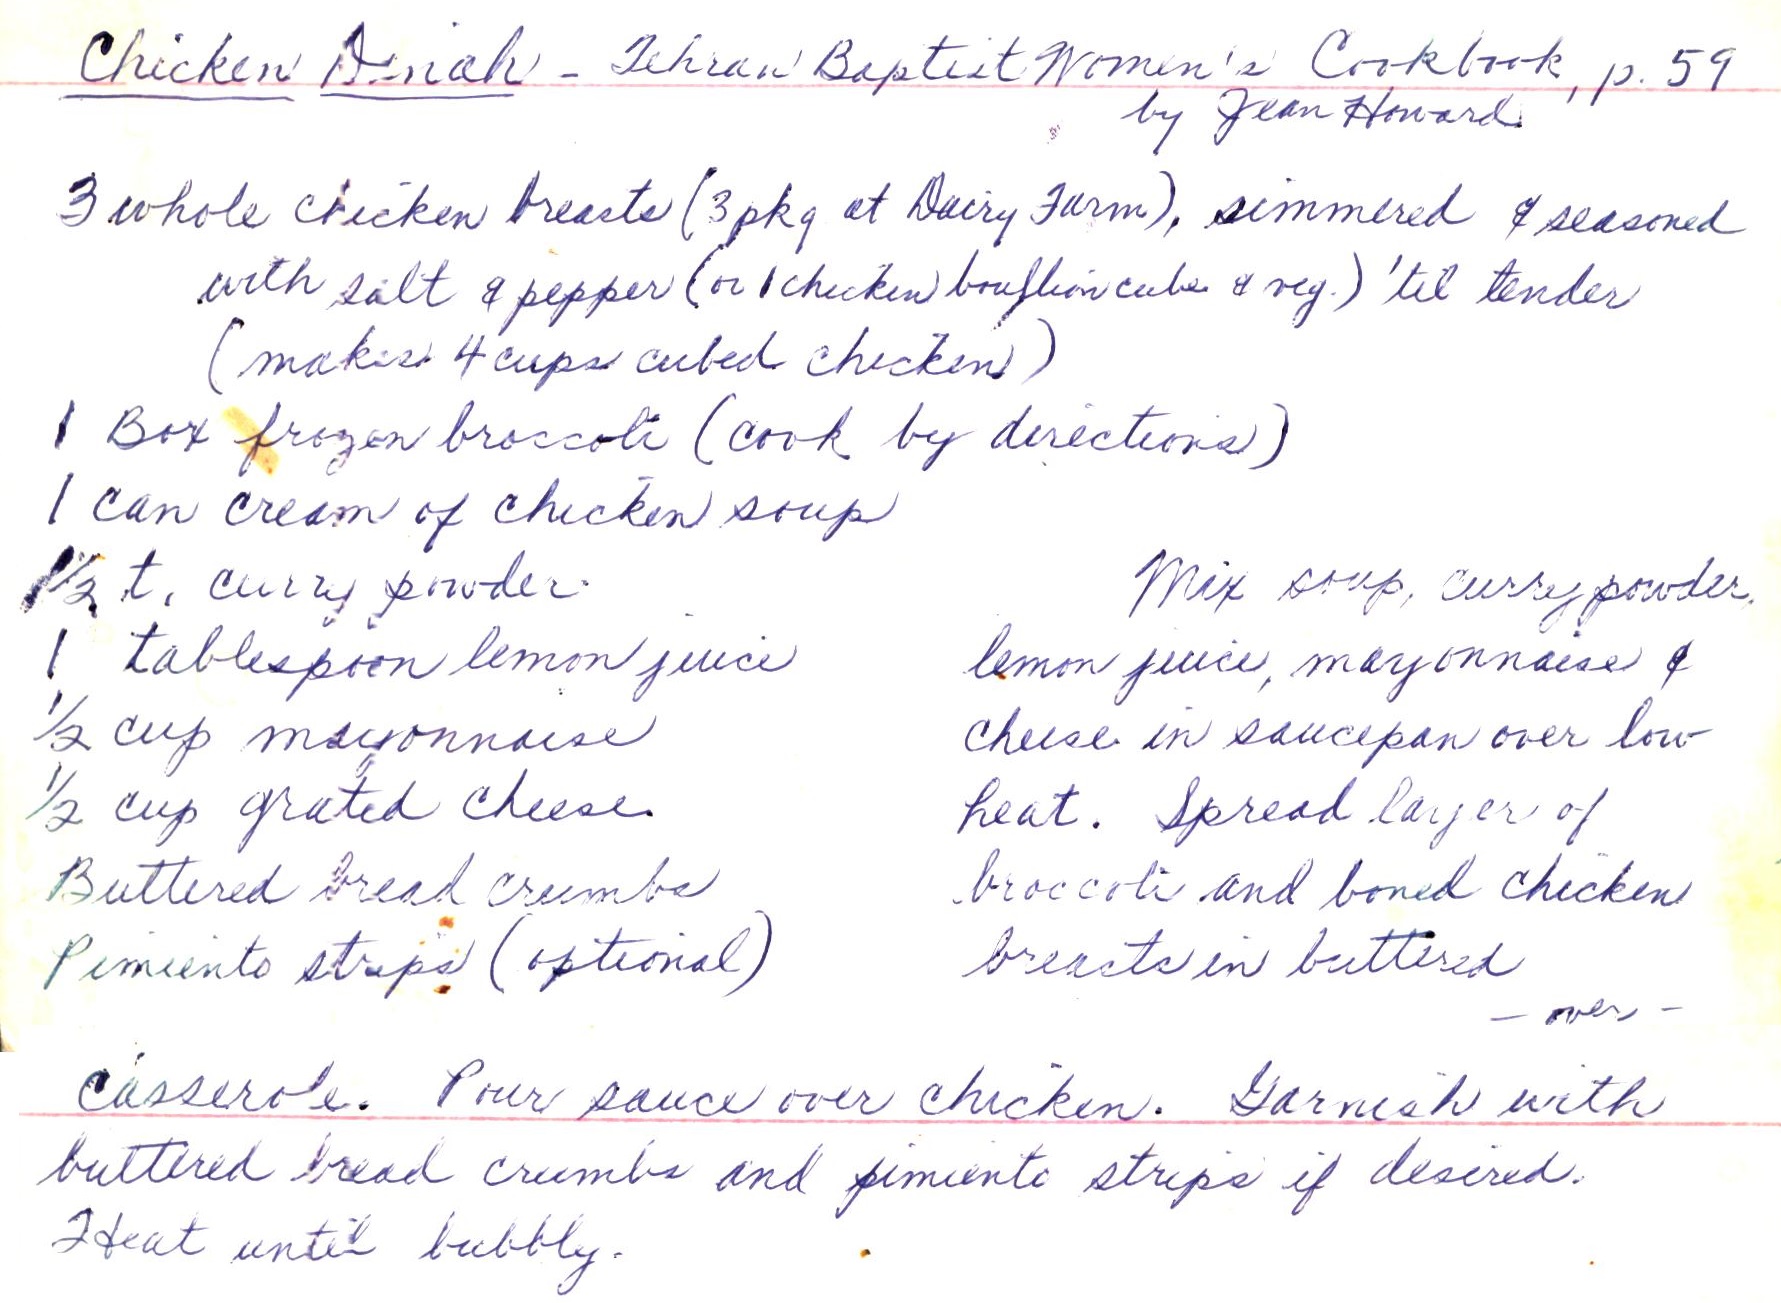 Chicken Dinah - Tehran Baptist Women's Cookbook, p. 59
by Jean Howard
3 whole chicken breasts (3 pkg at Dairy Farm), simmered & seasoned
with salt & pepper (or 1 chicken bouillion cube & veg.) 'til tender
(makes 4 cups cubed chicken)
1 Box frozen broccoli (cook by directions)
1 can cream of chicken soup
1/2 t. curry powder
1 tablespoon lemon juice
1/2 cup mayonnaise
1/2 cup grated cheese
Buttered bread crumbs
Pimiento strips (optional)
Mix soup, curry powder,
lemon juice, mayonnaise &
cheese in saucepan over low
heat. Spread layer of
broccoli and boned chicken
breasts in buttered
- over -
casserole. Pour sauce over chicken. Garnish with
buttered bread crumbs and pimiento strips if desired.
Heat until bubbly.